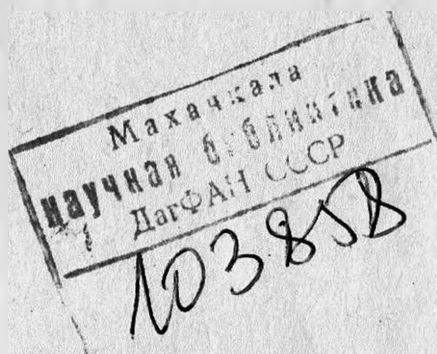 Махачкала
научная библиотека
ДагФАН СССР
103858